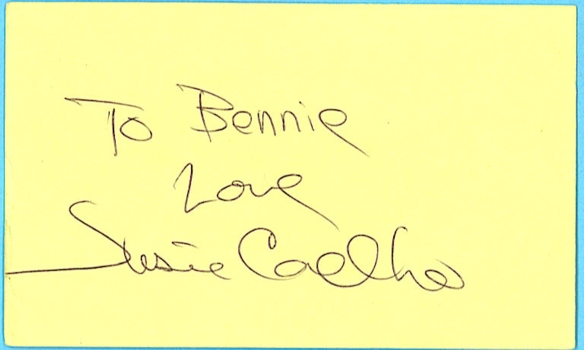 To Bennie
Love
Susie Coelho